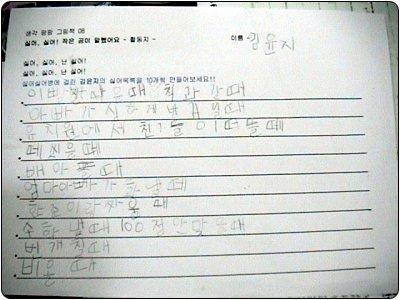 생각 팡팡 그림책 08
싫어, 싫어! 작은 곰이 말했어요 - 활동지 -
이름 김윤지
싫어, 싫어, 난 싫어!
싫어, 싫어, 난 싫어!
싫어싫어병에 걸린 김윤지의 싫어목록을 10개씩 만들어보세요!!
이빨 치과 갈때
아빠가 심하게
유치원에서 친구들이 떠들때
배아플때
엄마아빠가 화낼때
싸울때
수학 낼때 100점 안맞는때
베개
비올때